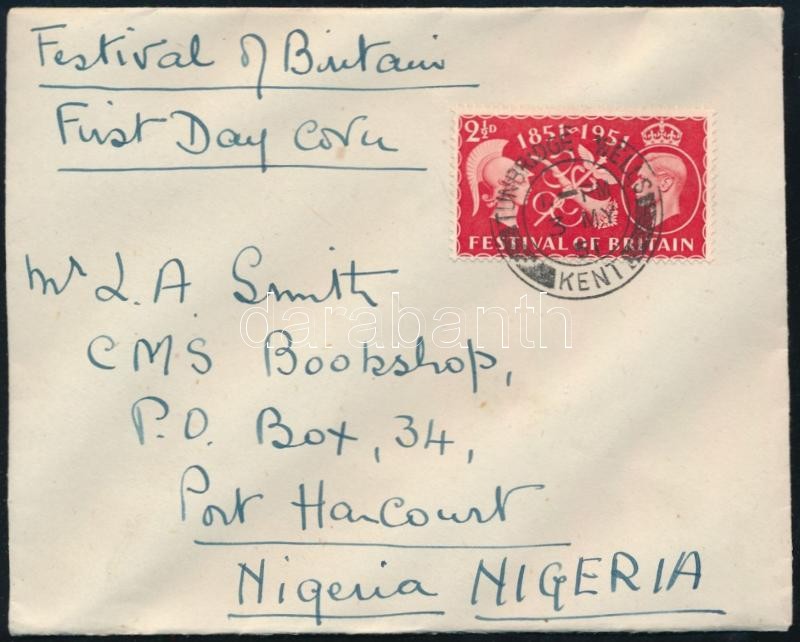 Festival of Britain
First Day Cover
2½D 1851-1951
FESTIVAL OF BRITAIN
TUNBRIDGE WELLS
3 MY
KENT
Mr L.A. Smith
darabanth
CMS Bookshop,
P.O. Box, 34,
Port Harcourt
Nigeria NIGERIA